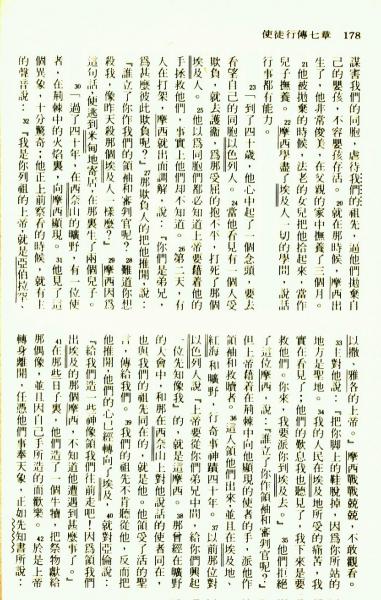 使徒行傳七章　178
謀害我們的同胞，虐待我們的祖先，逼他們將自
己的嬰孩，不容嬰孩存活。20就在那時候，摩西出
生了，他非常俊美，在父親的家中撫養了三個月。
21他被拋棄的時候，法老的女兒把他拾起來，當作
兒子撫養。22摩西學盡了埃及人一切的學問，說話
行事都有能力。
23「到了四十歲，他心中起了一個念頭，要去
看望自己的同胞以色列人。24當他看見有一個人受
欺負，就去護衛，為那受屈的抱不平，打死了那個
埃及人。25他以為同胞們都必知道上帝要藉着他的
手拯救他們，事實上他們却不知道。26第二天，有
人在打架，摩西就出面調解，說：『你們是弟兄，
為甚麼彼此欺負呢？』27那欺負人的把他推開，說：
『誰立了你作我們的領袖和審判官呢？28難道你想
殺我，像昨天殺那個埃及人一樣麼？』29摩西因為
這句話，便逃到米甸地寄居，在那裏生了兩個兒子。
30「過了四十年，在西奈山的曠野，有一位使
者，在荊棘中的火焰裏，向摩西顯現。31他見了這
個異象，十分驚奇；他正上前察看的時候，就有主
的聲音說：32『我是你列祖的上帝，就是亞伯拉罕、
以撒、雅各的上帝。』摩西戰戰兢兢，不敢觀看。
33主上對他說：『把你腳上的鞋脫掉，因為你所站的
地方是聖地。34我的人民在埃及地所受的痛苦，我
實在看見了；他們的歎息我也聽見了，我下來是要
救他們。你來，我要派你到埃及去。』35他們拒絕
了這位摩西，說：『誰立了你作領袖和審判官呢？』
但上帝藉着在荊棘中向他顯現的使者的手，派他作
領袖和救贖者。36這人領他們出來，並且在埃及地、
紅海和曠野，行奇事神蹟四十年。37以前那位對
以色列人說『上帝要從你們弟兄中間，給你們興起
一位先知像我』的，就是這摩西。38那曾經在曠野
的人會中，和那在西奈山上對他說話的使者同在，
也與我們的祖先同在的，就是他。他領受了活的聖
言，傳給我們。39我們的祖先不肯聽從他，反而把
他推開，他們的心已經轉向了埃及，40就對亞倫說：
『給我們造一些神像領我們往前走吧！因為領我們
出埃及的那個摩西，不知道他遭遇到甚麼事了。』
41在那些日子裏，他們造了一個牛犢，把祭物獻給
那偶像，並且因自己手所造的而歡樂。42於是上帝
轉身離開，任憑他們事奉天象，正如先知書所說：